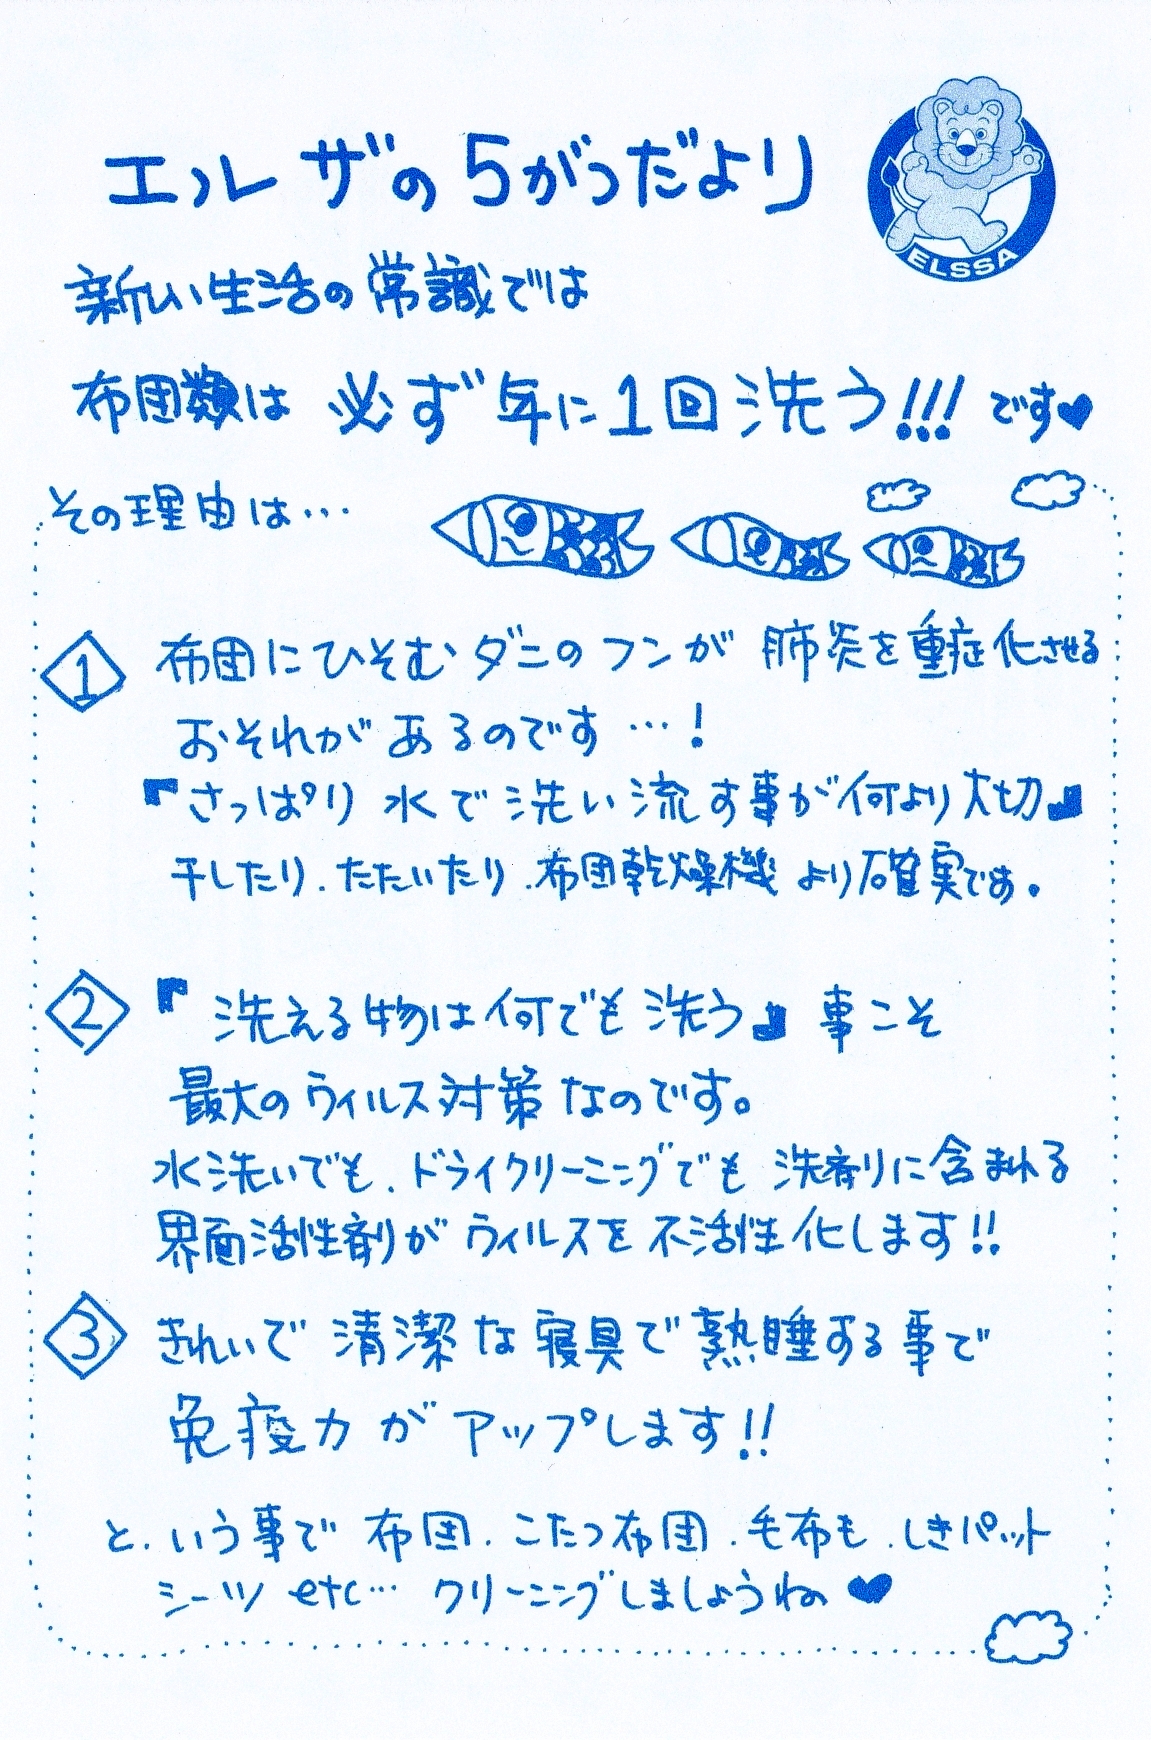 エルザの5がつだより
ELSSA
新しい生活の常識では
布団類は必ず年に1回洗う!!!です♥
その理由は…
1 布団にひそむダニのフンが肺炎を重症化させる
おそれがあるのです…!
『さっぱり水で洗い流す事が何より大切』
干したり、たたいたり、布団乾燥機より確実です。
2 『洗える物は何でも洗う』事こそ
最大のウィルス対策なのです。
水洗いでも、ドライクリーニングでも洗剤りに含まれる
界面活性剤がウィルスを不活性化します!!
3 きれいで清潔な寝具で熟睡する事で
免疫力がアップします!!
と、いう事で布団、こたつ布団、毛布も、しきパット
シーツetc…クリーニングしましょうね♥